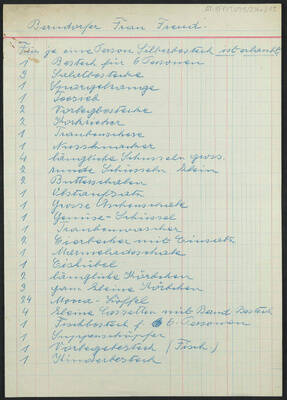 Berndorfer Frau Freud.
Für je eine Person Silberbesteck ist erlaubt
1 Besteck für 6 Personen
3 Salatbestecke
1 Spargelzange
1 Teesieb
2 Vorlegbestecke
2 Korkzieher
1 Traubenschere
1 Nussknacker
4 längliche Schüsseln gross.
2 runde Schüsseln klein
2 Butterschalen
1 Obstaufsatz
1 Grosse Aschenschale
1 Gemüse-Schüssel
1 Traubenwascher
2 Eierbecher mit Einsatz
1 Marmeladeschale
1 Eiskübel
2 längliche Körbchen
3 ganz kleine Körbchen
24 Mocca-Löffel
4 kleine Cassetten mit Besteck
1 Fischbesteck f 6 Personen
1 Suppenschöpfer
1 Vorlegebesteck (Fisch)
1 Kinderbesteck